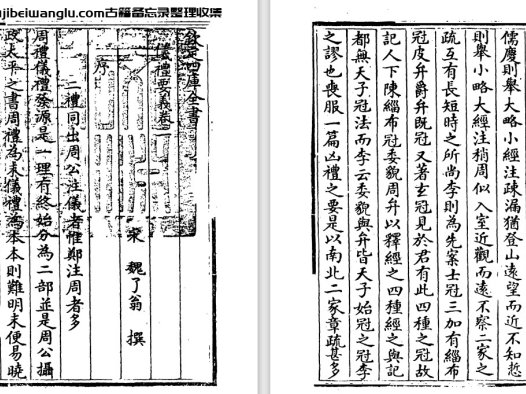 jibeiwanglu.com古籍备忘录整理收集
欽定四庫全書
儀禮要義卷
宋 魏了翁 撰
序
二禮同出周公注儀者惟鄭注周者多
周禮儀禮發源是一理有終始分為二部並是周公攝
政太平之書周禮為末儀禮為本本則難明末便易曉
儒慶則舉大略小經注疎漏猶登山遠望而近不知悊
則舉小略大經注稍周似入室近觀而遠不察二家之
疏互有長短時之所尚李則為先案士冠三加有緇布
冠皮弁爵弁既冠又著玄冠見於君有此四種之冠故
記人下陳緇布冠委貌周弁以釋經之四種經之與記
都無天子冠法而李云委貌與弁皆天子始冠之冠李
之謬也喪服一篇凶禮之要是以南北二家章疏甚多